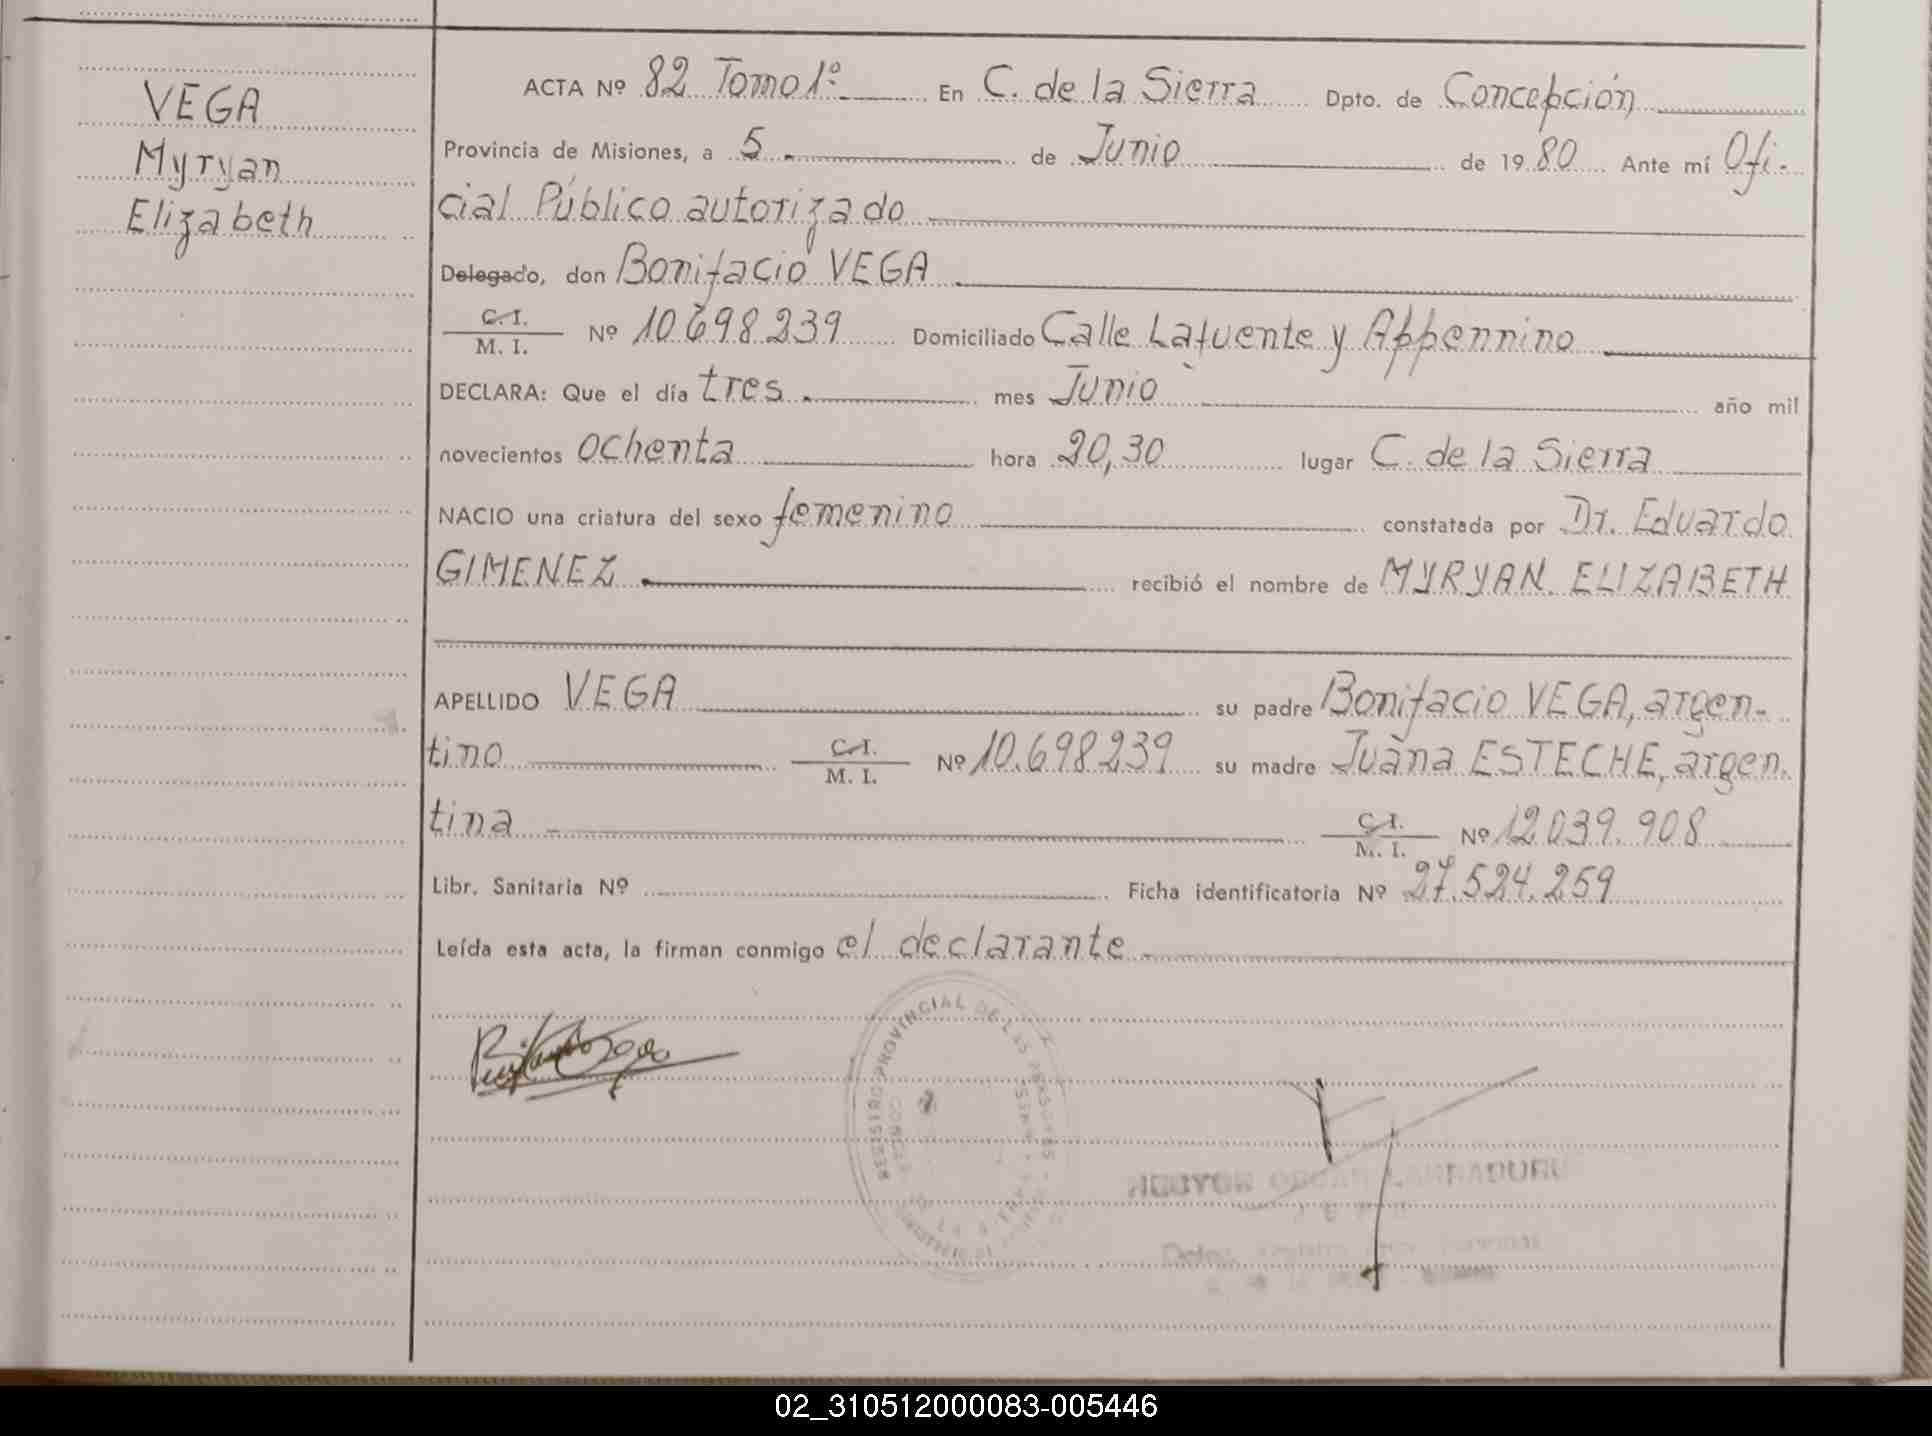 VEGA
Myryan
Elizabeth
ACTA Nº 82 Tomo 1º En C. de la Sierra Dpto. de Concepción
Provincia de Misiones, a 5 de Junio de 1980 Ante mí Ofi-
cial Público autorizado
Delegado, don Bonifacio VEGA
C. I.
M. I. Nº 10.698.239 Domiciliado Calle Lafuente y Appennino
DECLARA: Que el día tres mes Junio año mil
novecientos ochenta hora 20,30 lugar C. de la Sierra
NACIO una criatura del sexo femenino constatada por Dr. Eduardo
GIMENEZ recibió el nombre de MYRYAN ELIZABETH
APELLIDO VEGA su padre Bonifacio VEGA, argen-
tino C. I.
M. I. Nº 10.698.239 su madre Juana ESTECHE, argen-
tina C. I.
M. I. Nº 12.039.908
Libr. Sanitaria Nº Ficha identificatoria Nº 27.524.259
Leída esta acta, la firman conmigo el declarante
REGISTRO PROVINCIAL DE LAS PERSONAS
02_310512000083-005446